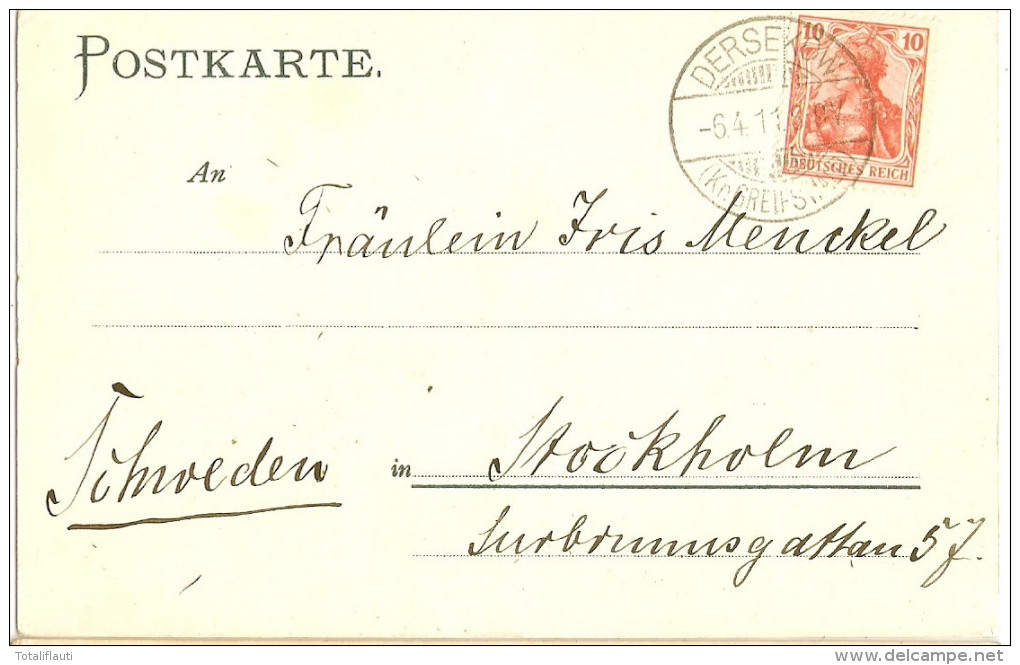 POSTKARTE.
DERSEKOW
10 10
-6.4.11.
DEUTSCHES REICH
(Kr. GREIFSW.)
An
Fräulein Iris Menckel
Schweden
in Stockholm
Surbrunnsgattan 57.
Totaliflauti
delcampe.net